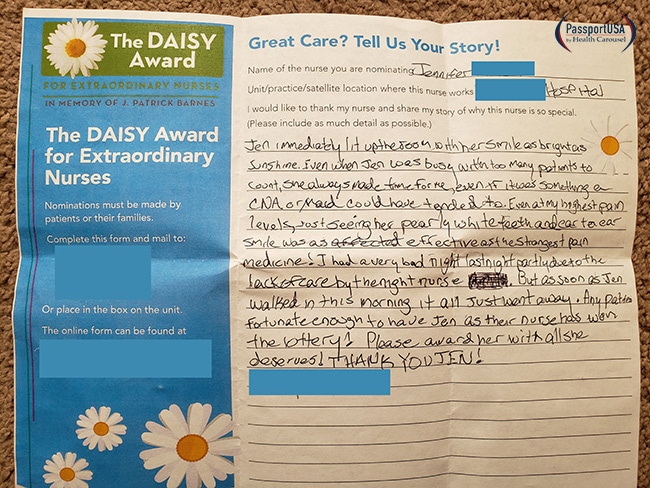 PassportUSA
by Health Carousel
The DAISY
Award
FOR EXTRAORDINARY NURSES
IN MEMORY OF J. PATRICK BARNES
The DAISY Award
for Extraordinary
Nurses
Nominations must be made by
patients or their families.
Complete this form and mail to:
Or place in the box on the unit.
The online form can be found at
Great Care? Tell Us Your Story!
Name of the nurse you are nominating Jennifer
Unit/practice/satellite location where this nurse works Hospital
I would like to thank my nurse and share my story of why this nurse is so special.
(Please include as much detail as possible.)
Jen immediately lit up the room with her smile as bright as
sunshine. Even when Jen was busy with too many patients to
count, she always made time for me, even if it was something a
CNA or Maid could have tended to. Even at my highest pain
levels, just seeing her pearly white teeth and ear to ear
smile was as affected effective as the stongest pain
medicine! I had a very bad night last night partly due to the
lack of care by the night nurse. But as soon as Jen
walked in this morning it all just went away. Any patien
fortunate enough to have Jen as their nurse has won
the lottery! Please award her with all she
deserves! THANK YOU JEN!